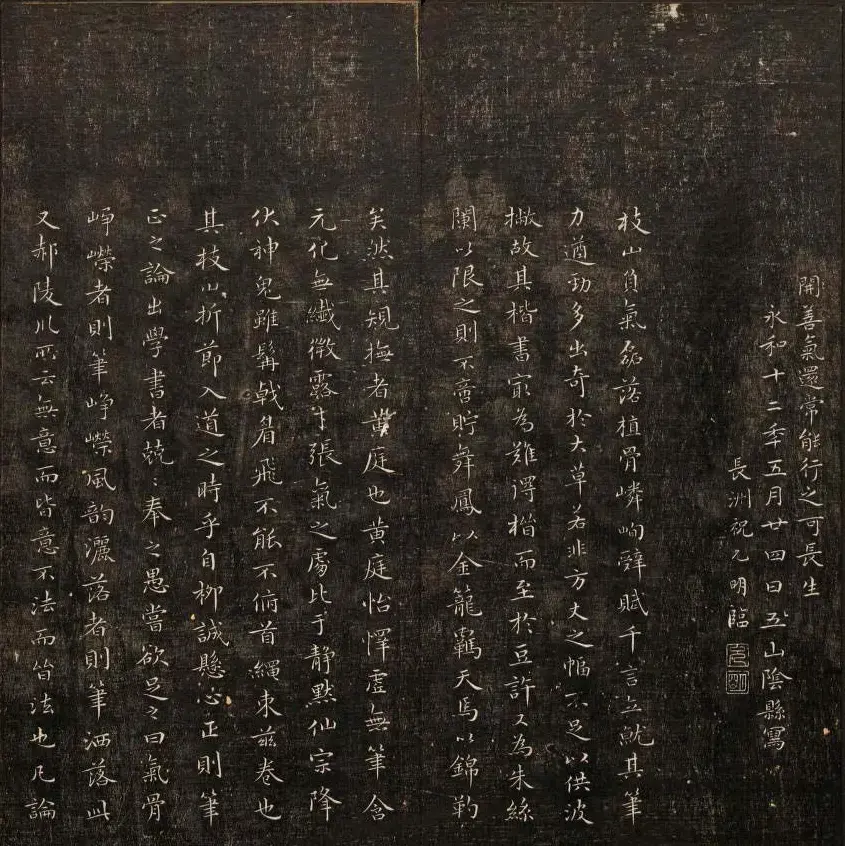 開善氣還常能行之可長生
永和十二年五月廿四日五山陰縣寫
長洲祝允明臨
允明
枝山負氣磊落植骨嶙峋辟賦千言立就其筆
力遒勁多出奇於大草若非方丈之幅不足以供波
撇故其楷書寂為難得楷而至於豆許又為朱絲
闌以限之則不啻貯舞鳳以金籠羈天馬以錦靮
矣然其規撫者黄庭也黄庭怡懌虛無筆含
元化無纖微露才張氣之處比于靜默仙宗降
伏神鬼雖髯戟眉飛不能不俯首繩束茲卷也
其枝山折節入道之時乎自柳誠懸心正則筆
正之論出學書者兢〻奉之愚嘗欲足之曰氣骨
崢嶸者則筆崢嶸風韵灑落者則筆洒落此
又郝陵川所云無意而皆意不法而皆法也凡論